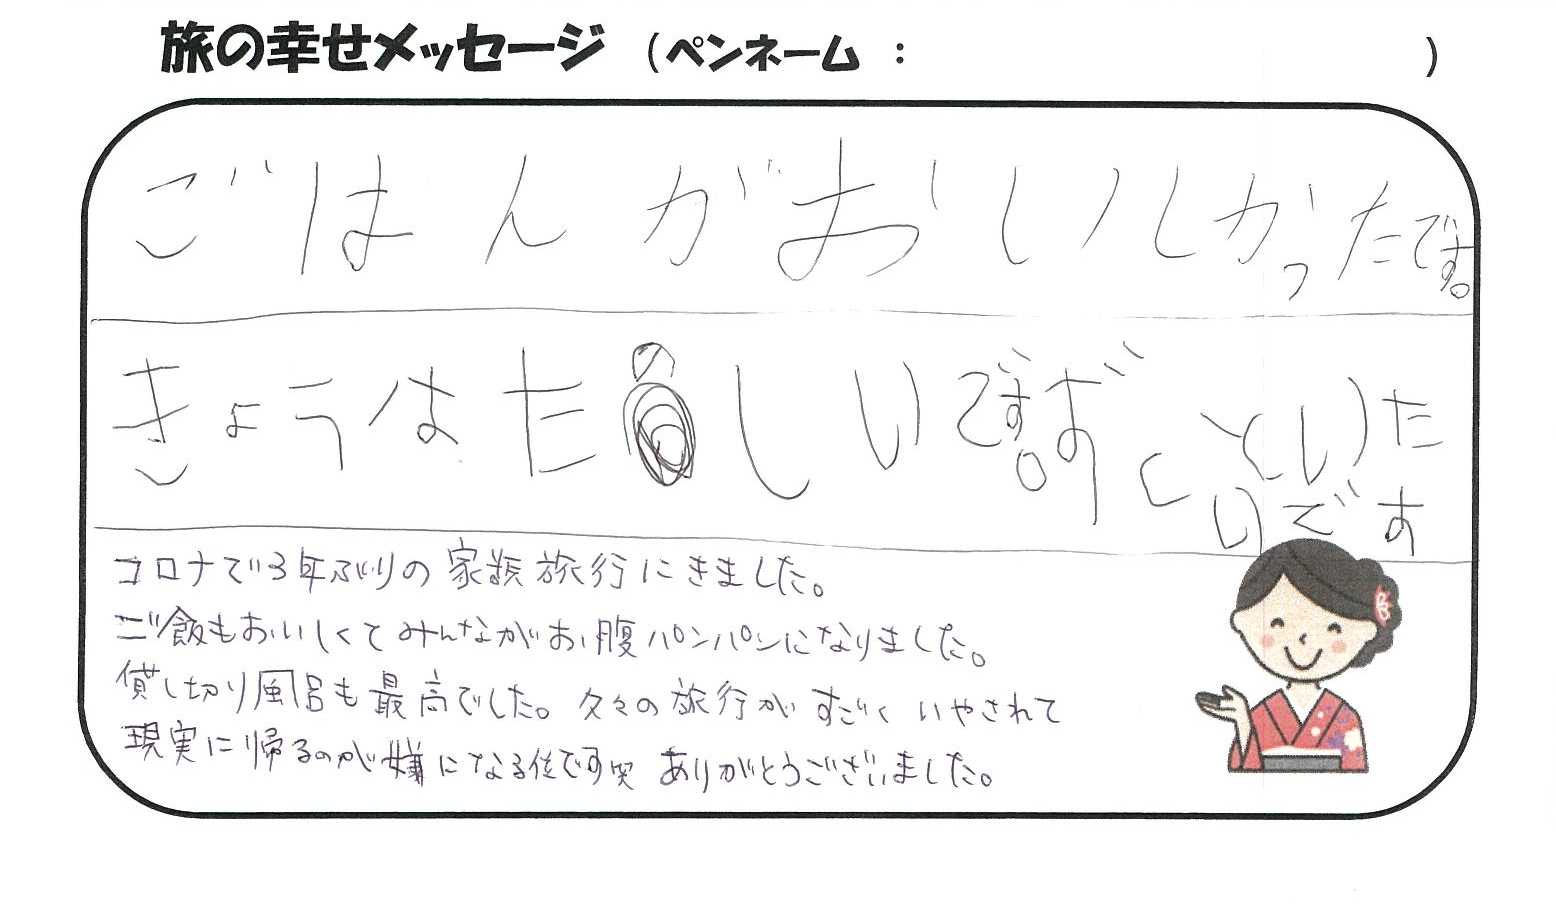 旅の幸せメッセージ (ペンネーム : )
ごはんがおいしかったです。
きょうはたのしいです。ずっといたいです
コロナで3年ぶりの家族旅行にきました。
ご飯もおいしくてみんながお腹パンパンになりました。
貸し切り風呂も最高でした。久々の旅行がすごくいやされて
現実に帰るのが嫌になる位です笑 ありがとうございました。